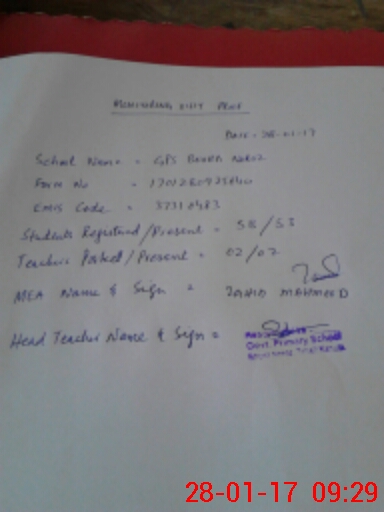 MONITORING VISIT PROF
DATE = 28-01-17
School Name = GPS
Form No =
EMIS Code = 37310483
Students Registered/Present = 58/53
Teachers Posted/Present = 02/02
MEA Name & Sign = ZAHID MAHMOOD
Head Teacher Name & Sign =
Govt. Primary School
28-01-17 09:29